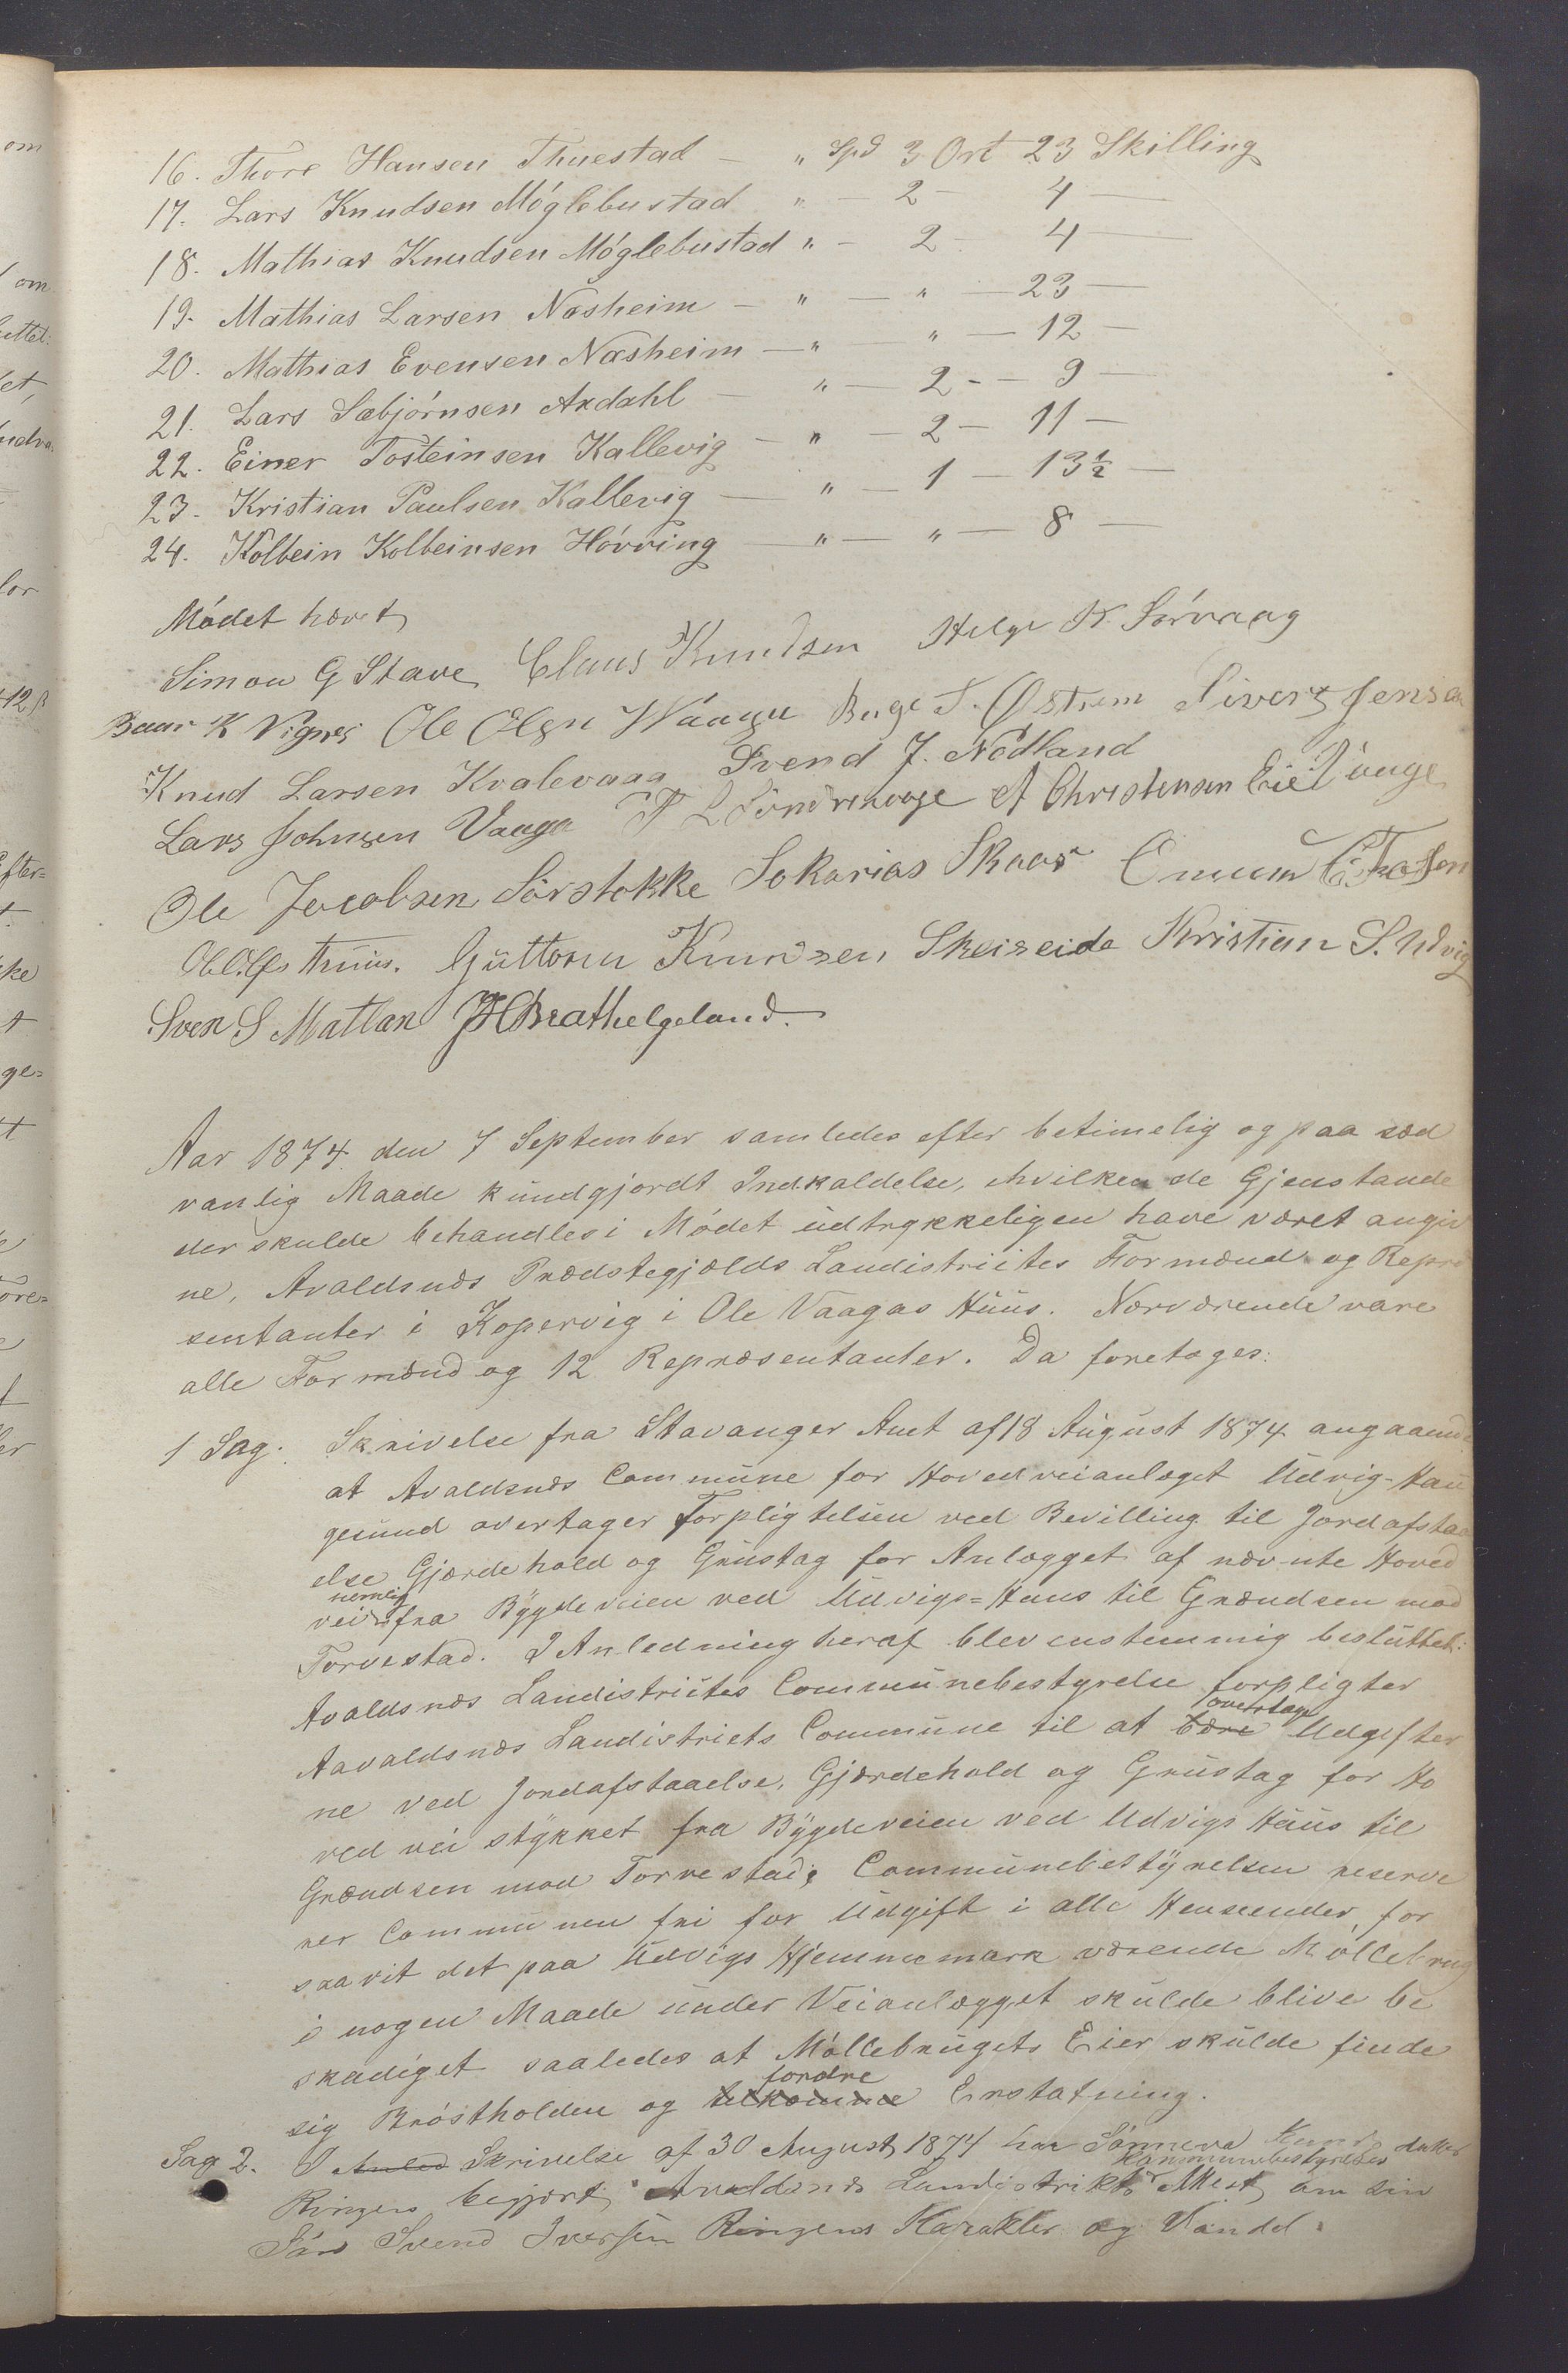 16. Thore Hansen Thuestad — " Spd 3 Ort 23 Skilling
17. Lars Knudsen Móglebustad " — 2 — 4 —
18. Mathias Knudsen Móglebustad " — 2 — 4 —
19. Mathias Larsen Næsheim — " — " — 23 —
20. Mathias Evensen Næsheim — " — " — 12 —
21. Lars Sæbjórnsen Axdahl — " — 2 - — 9 —
22. Einer Tosteinsen Kallevig — " — 2 — 11 —
23. Kristian Paulsen Kallevig — " — 1 — 13½ —
24. Kolbein Kolbeinsen Hóvring — " — " — 8 —
Módet hævet
Simon G Stave Claus Knudsen Helge K. Sørvaag
K Vignes Ole Olsen Waage Østrem Sivert Jensen
Knud Larsen Kvalevaag Svend J. Nodland
Lars Johnsen Vaage A Christensen
Ole Jacobsen Sórstokke Sokarias Skaar
Guttorm Knudsen Skeiseide Kristian S. Udvig
Sven S Matland Brathelgeland.
Aar 1874 den 7 September samledes efter betimelig og paa sæd
vanlig Maade kundgjordt Indkaldelse, hvilken de Gjenstande
der skulde behandles i Módet udtrykkeligen have været angiv
ne, Avaldsnæs Prædstegjælds Landistriktes Formænd og Repræ
sentanter i Kopervig i Ole Vaagas Huus. Nærværende vare
alle Formænd og 12 Repræsentanter. Da foretoges:
1 Sag. Skrivelse fra Stavanger Amt af 18 August 1874 angaaende
at Avaldsnæs Commune for Hovedveianlæget Udvig-Hau
gesund overtager Forpligtelsen ved Bevilling til Jordafstaa
else Gjærdehold og Grustag for Anlægget af nævnte Hoved
vei nemlig fra Bygdeveien ved Udvigs=Huus til Grændsen mod
Torvestad. I Anledning heraf blev enstemmig besluttet:
Avaldsnæs Landistriktes Communebestyrelse forpligter
Aavaldsnæs Landistriets Commune til at bære overtage Udgifter
ne ved Jordafstaaelse, Gjærdehold og Grustag for Ho
vedveistykket fra Bygdeveien ved Udvigs Huus til
Grændsen mod Torvestad; Communebestyrelsen reserve
rer Communen fri for Udgift i alle Henseender, for
saavit det paa Udvigs Hjemmemark værende Möllebrug
i nogen Maade under Veianlægget skulde blive be
skadiget saaledes at Móllebrugets Eier skulde finde
sig Bróstholden og tilkomme fordre Erstatning.
Sag 2. I Anled Skrivelse af 30 August 1874 har Sønneva Knudsdatter
Ringen begjært Avaldsnæs Landistrikts Kommunebestyrelses Attest om sin
Són Svend Iversen Ringens Karakter og Vandel.